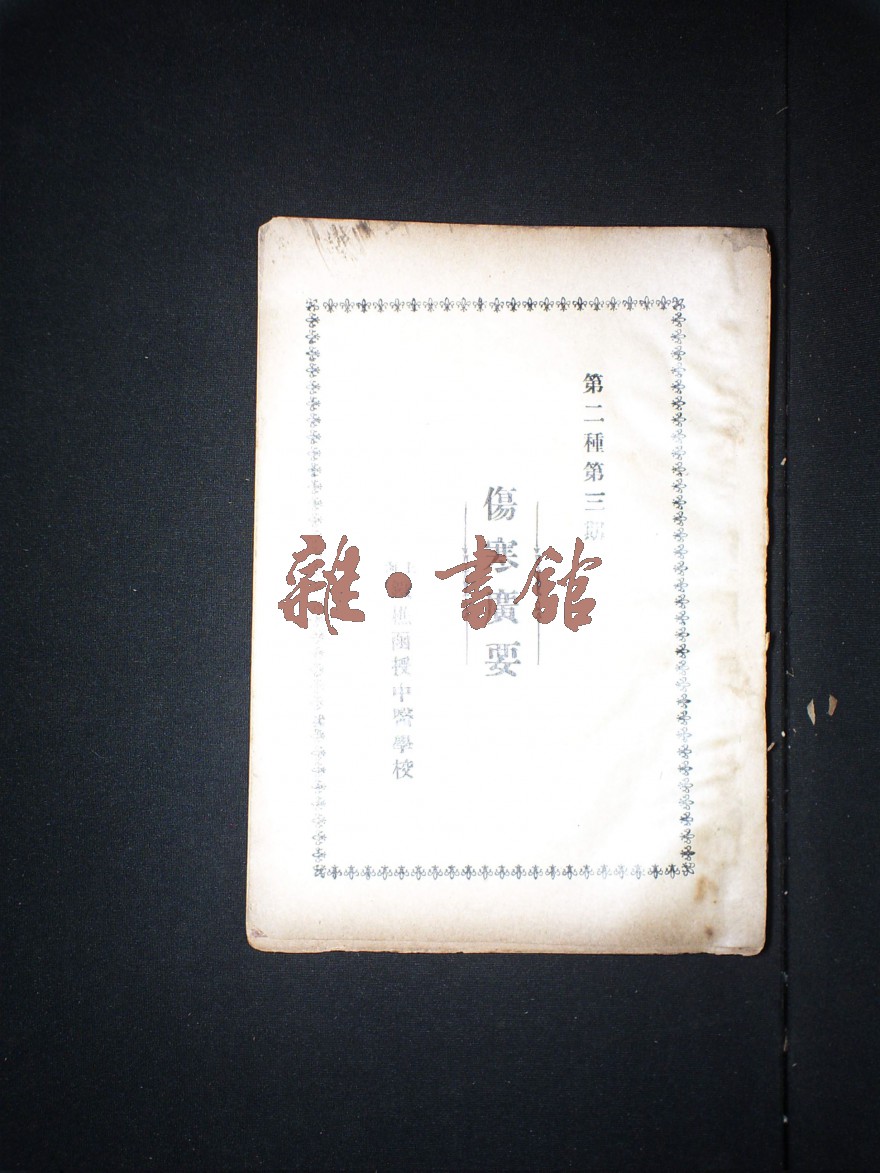 第二種第三
傷寒廣要
函授中醫學校
雜·書館